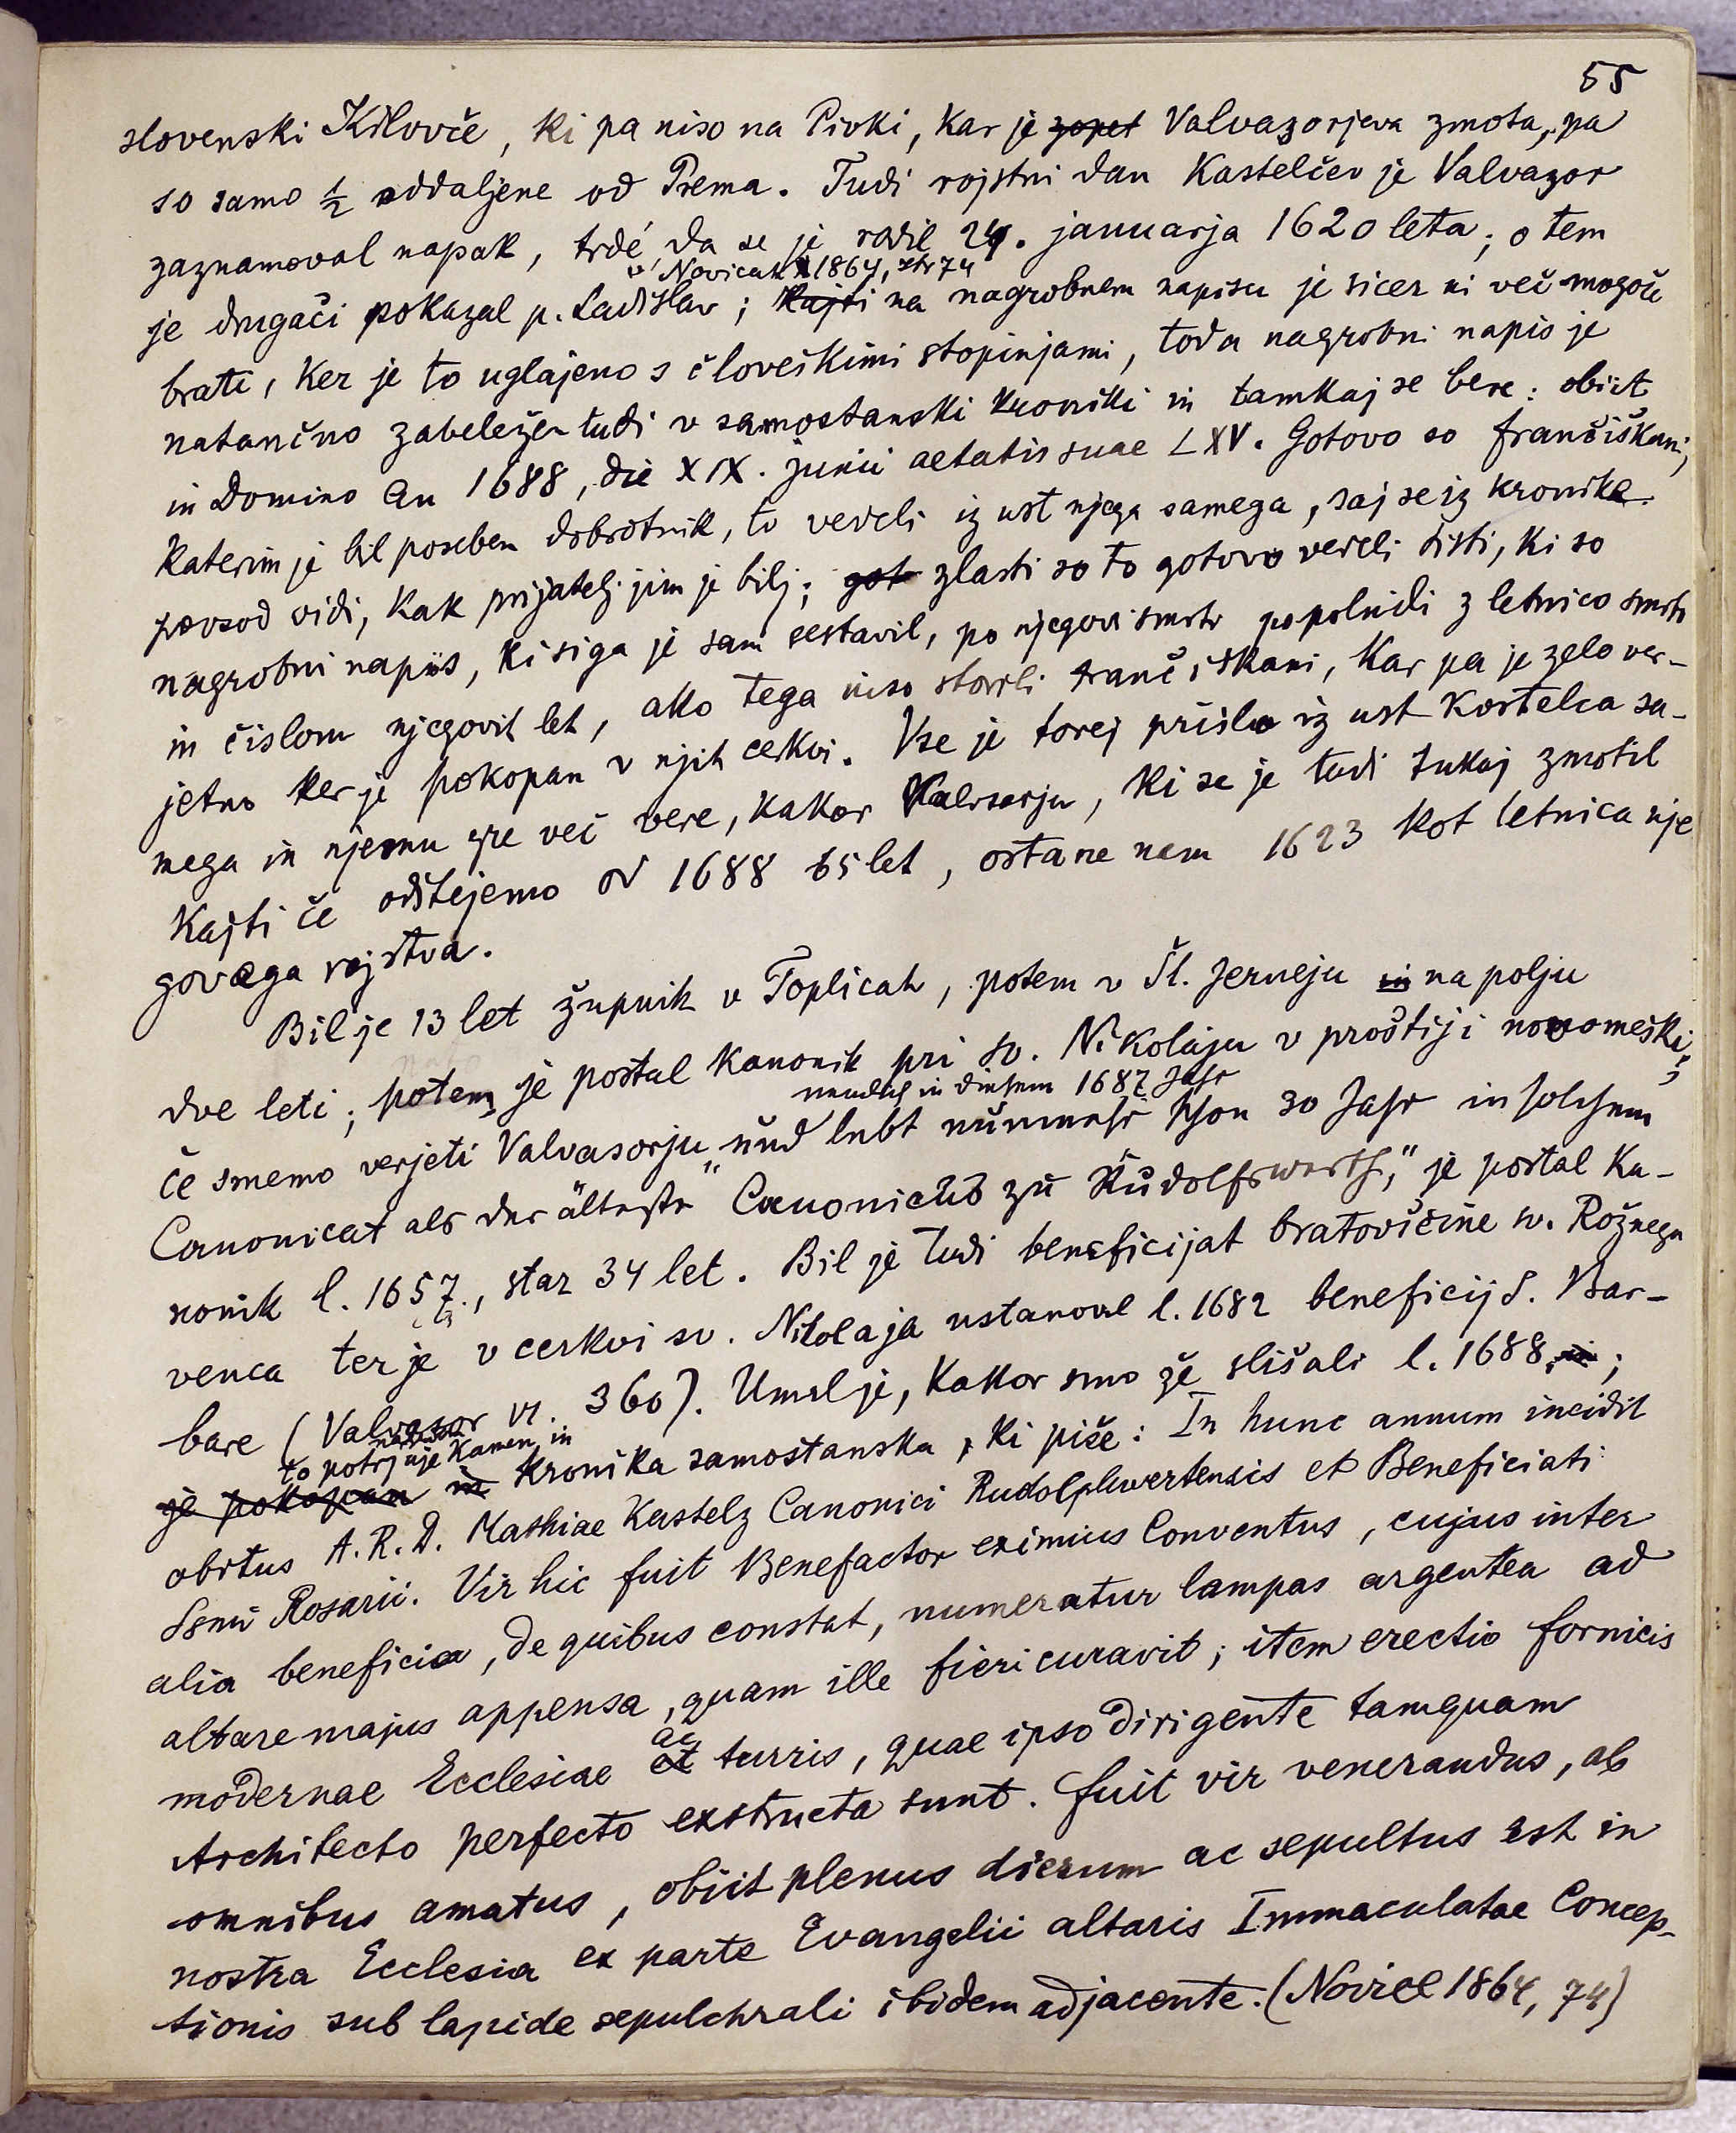 55
slovenski Kilovče, ki pa niso na Pivki, kar je zopet Valvazorjeva zmota, pa
so samo ½ oddaljene od Prema. Tudi rojstni dan Kastelčev je Valvazor
zaznamoval napak, trdé, da se je rodil 24. januarja 1620 leta; o tem
v Novicah 1864, str 74
je drugači pokazal p. Ladislav; kajti na nagrobnem napisu je sicer ni več mogoče
brati, ker je to uglajeno s človeškimi stopinjami, toda nagrobni napis je
natančno zabeležen tudi v samostanski kroniki in tamkaj se bere: obiit
in Domino An 1688, die XIX. junii aetatis suae LXV. Gotovo so frančiškani,
katerim je bil poseben dobrotnik, to vedeli iz ust njega samega, saj se iz kronike
povsod vidi, kak prijatelj jim je bil; got zlasti so to gotovo vedeli tisti, ki so
nagrobni napis, ki si ga je sam sestavil, po njegovi smrti popolnili z letnico smrti
in čislom njegovih let, ako tega niso storili frančiškani, kar pa je zelo ver-
jetno ker je pokopan v njih cerkvi. Vse je torej prišlo iz ust Kastelca sa-
mega in njemu gre več vere, kakor Valvasorju, ki se je tudi tukaj zmotil
kajti če odštejemo od 1688 65 let, ostane nam 1623 kot letnica nje
govega rojstva.
Bil je 13 let župnik v Toplicah, potem v Št. Jerneju in na polju
dve leti; potem je postal kanonik pri sv. Nikolaju v proštiji novomeški;
nemlich in diesem 1687 Jahr
če smemo verjeti Valvasorju „und lebt nunmehr schon 30 Jahr in solchem
Canonicat als der älteste Canonicus zu Rudolfswerth," je postal ka-
nonik l. 1657., star 34 let. Bil je tudi beneficijat bratovščine sv. Rožnega
venca ter je v cerkvi sv. Nikolaja ustanovil l. 1682 beneficij S. Bar-
bare (Valvasor VI. 360). Umrl je, kakor smo že slišali l. 1688 in;
to potrjuje kamen in
je pokopan in kronika samostanska, ki piše: In hunc annum incidit
obitus A. R. D. Mathiae Kastelz Canonici Rudolphwertensis et Beneficiati
Ssmi Rosarii. Vir hic fuit Benefactor eximius Conventus, cujus inter
alia beneficia, de quibus constat, numeratur lampas argentea ad
altare majus appensa, quam ille fieri curavit; item erectio fornicis
ac
modernae Ecclesiae et turris, quae ipso dirigente tamquam
Architecto perfecto exstructa sunt. Fuit vir venerandus, ab
omnibus amatus, obiit plenus dierum ac sepultus est in
nostra Ecclesia ex parte Evangelii altaris Immaculatae Concep-
tionis sub lapide sepulchrali ibidem adjacente. (Novice 1864, 74)